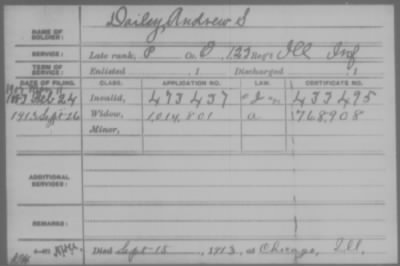 Dailey, Andrew S
NAME OF SOLDIER:
SERVICE: Late rank, P Co. D, 123 Reg't Ill Inf
TERM OF SERVICE: Enlisted , 1 Discharged , 1
DATE OF FILING. CLASS. APPLICATION NO. LAW. CERTIFICATE NO.
24 Invalid, 473437 433495
1913 Sept 26 Widow, 1,014,801 a 768,908
Minor,
ADDITIONAL SERVICES:
REMARKS:
Died Sept 15, 1913, at Chicago, Ill.